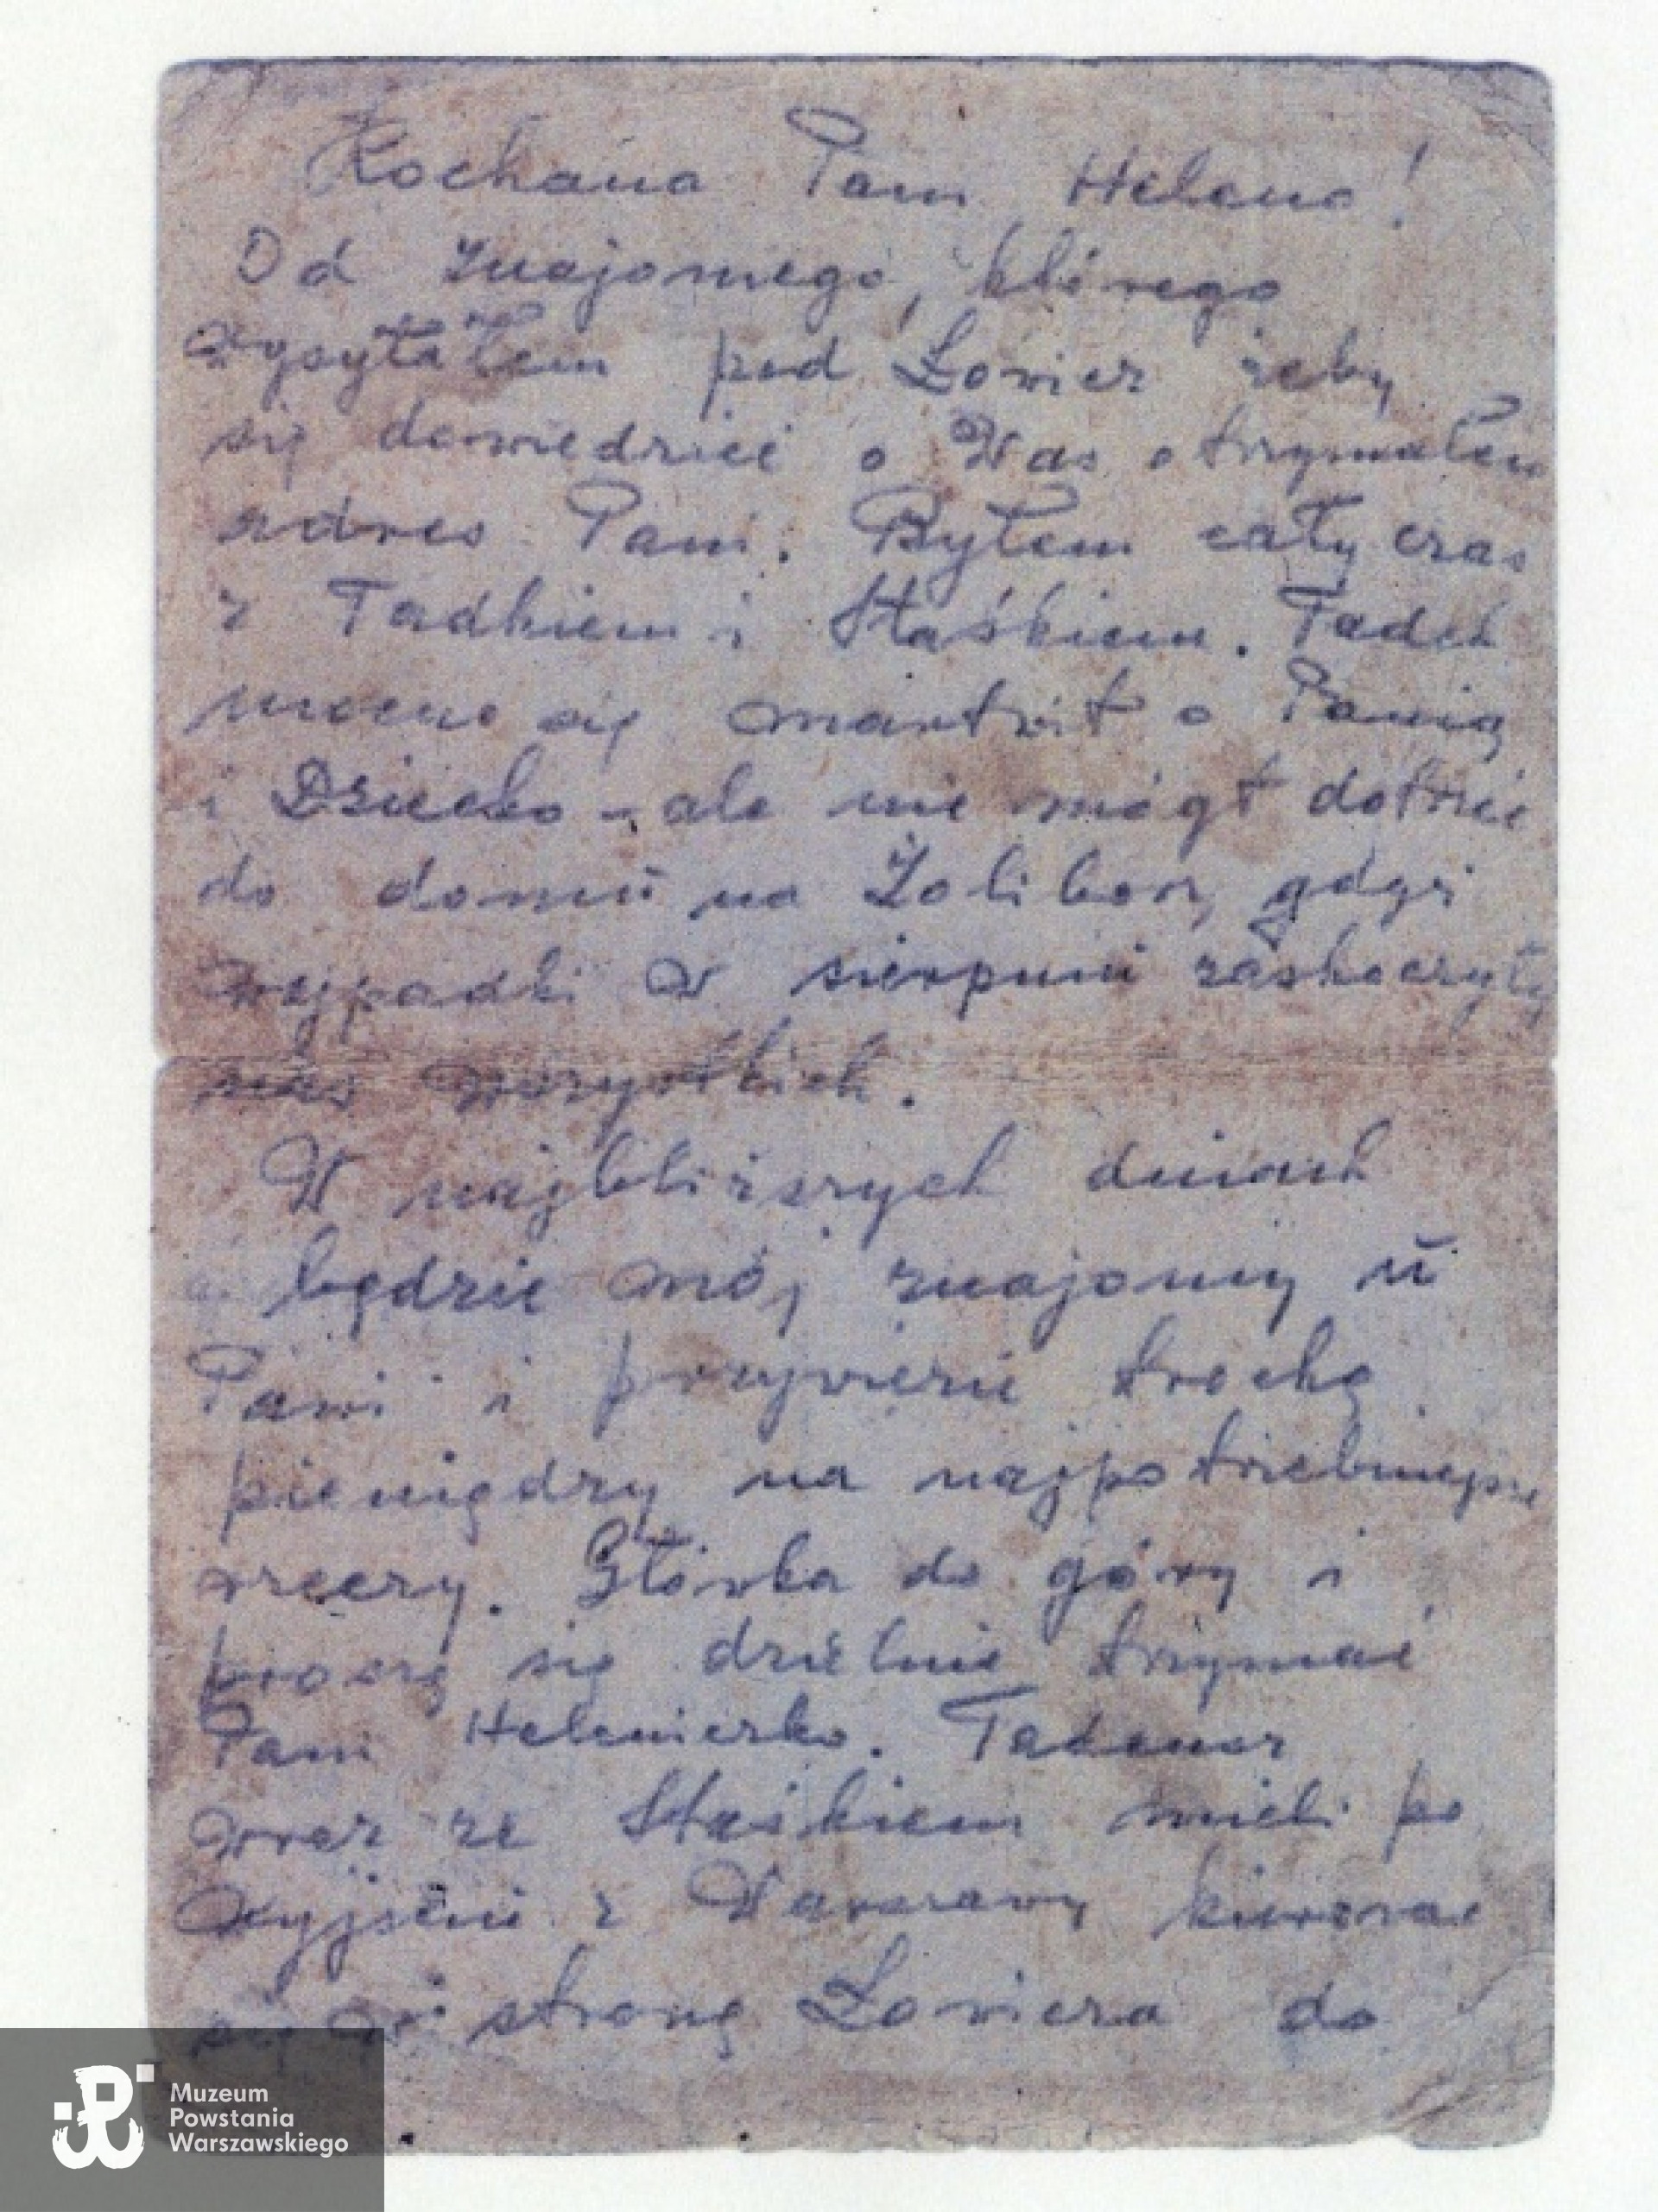 Kochana Pani Heleno!
Od znajomego, którego
wysyłałem pod Łowicz żeby
się dowiedzieć o Was otrzymałem
adres Pani. Byłem cały czas
z Tadkiem i Staśkiem. Tadek
mocno się martwił o Panią
i Dziecko - ale nie mógł dotrzeć
do domu na Żoliborz, gdyż
wypadki w sierpniu zaskoczyły
nas wszystkich.
W najbliższych dniach
będzie mój znajomy u
Pani i przywiezie trochę
pieniędzy na najpotrzebniejsze
rzeczy. Główka do góry i
proszę się dzielnie trzymać
Pani Helenierko. Tadeusz
wraz ze Staśkiem mieli po
wyjściu z Warszawy kierować
się w stronę Łowicza do
Muzeum
Powstania
Warszawskiego